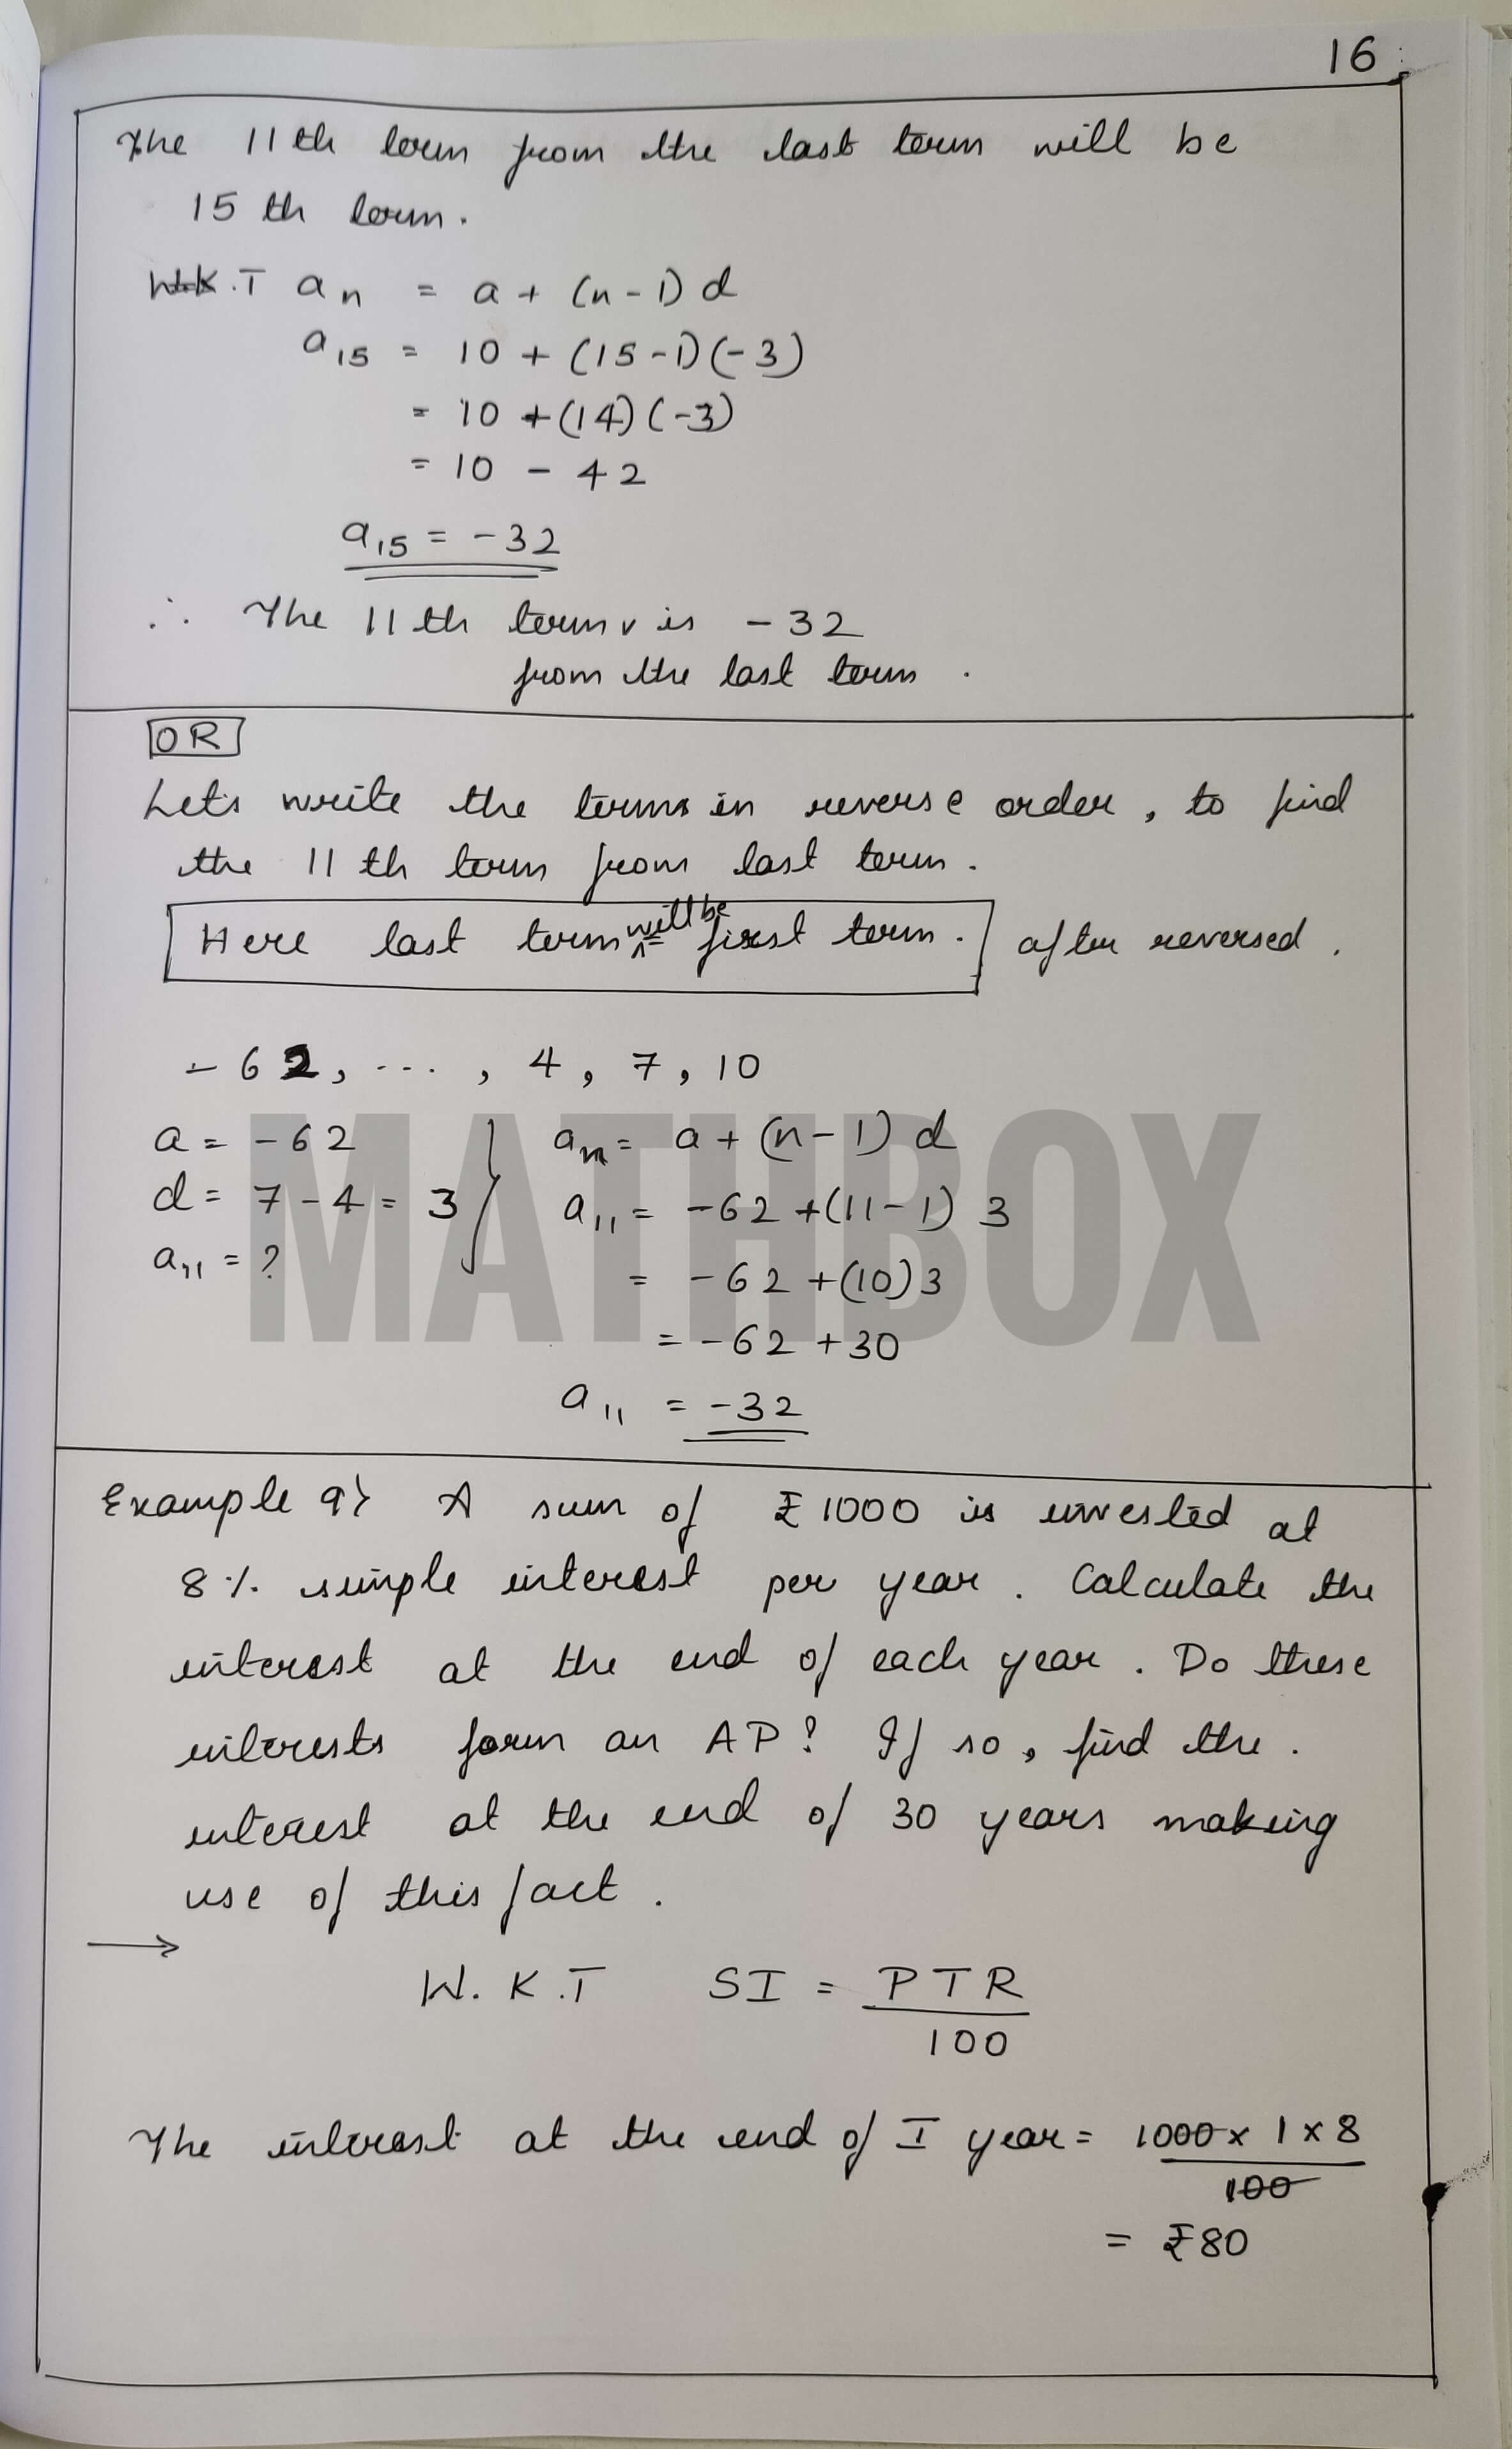 16
The 11th term from the last term will be
15th term.
W.K.T an = a + (n-1) d
a15 = 10 + (15-1)(-3)
= 10 + (14) (-3)
= 10 - 42
a15 = -32
∴ The 11th term is -32
from the last term.
OR
Lets write the terms in reverse order, to find
the 11th term from last term.
Here last term will be first term. after reversed.
-62, ..., 4, 7, 10
a = -62
d = 7 - 4 = 3
a11 = ?
an = a + (n-1) d
a11 = -62 + (11-1) 3
= -62 + (10) 3
= -62 + 30
a11 = -32
MATHBOX
Example 9) A sum of ₹1000 is invested at
8% simple interest per year. Calculate the
interest at the end of each year. Do these
interests form an AP? If so, find the.
interest at the end of 30 years making
use of this fact.
→
W.K.T SI = PTR
100
The interest at the end of I year = 1000 x 1 x 8
100
= ₹80